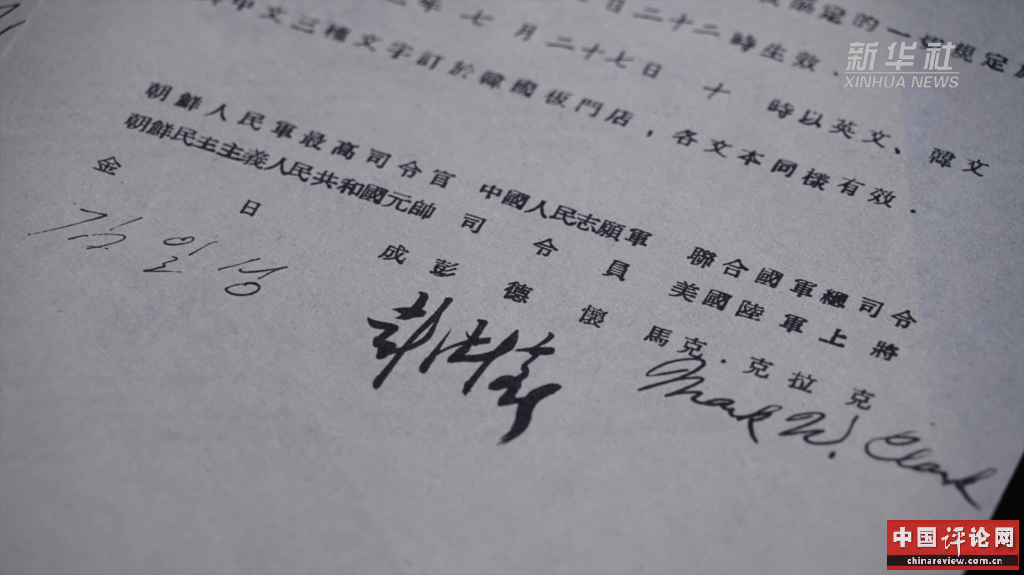 協定的一切規定
日二十二時生效．
年七月二十七日十時以英文、韓文
中文三種文字訂於韓國板門店，各文本同樣有效．
朝鮮人民軍最高司令官
朝鮮民主主義人民共和國元帥
金日成
김일성
中國人民志願軍
司令員
彭德懷
彭德懷
聯合國軍總司令
美國陸軍上將
馬克·克拉克
Mark W. Clark
新华社
XINHUA NEWS
中国评论网
chinareview.com.cn